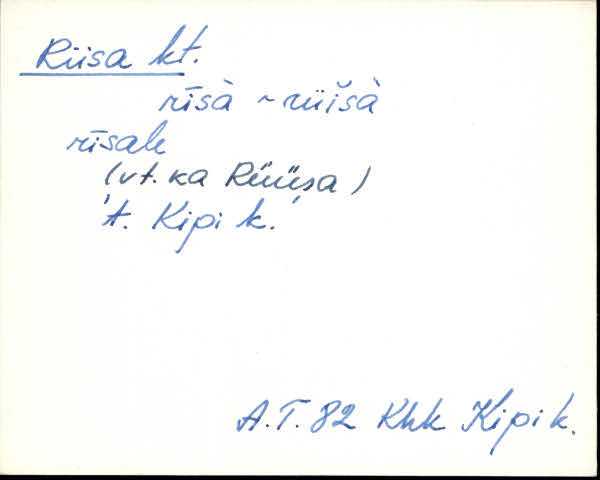 Riisa kt.
rīsà ~ rüĭsà
rīsalt
(vt. ka Rüüsa)
't. Kipi k.'
A.T. 82 Khk Kipi k.